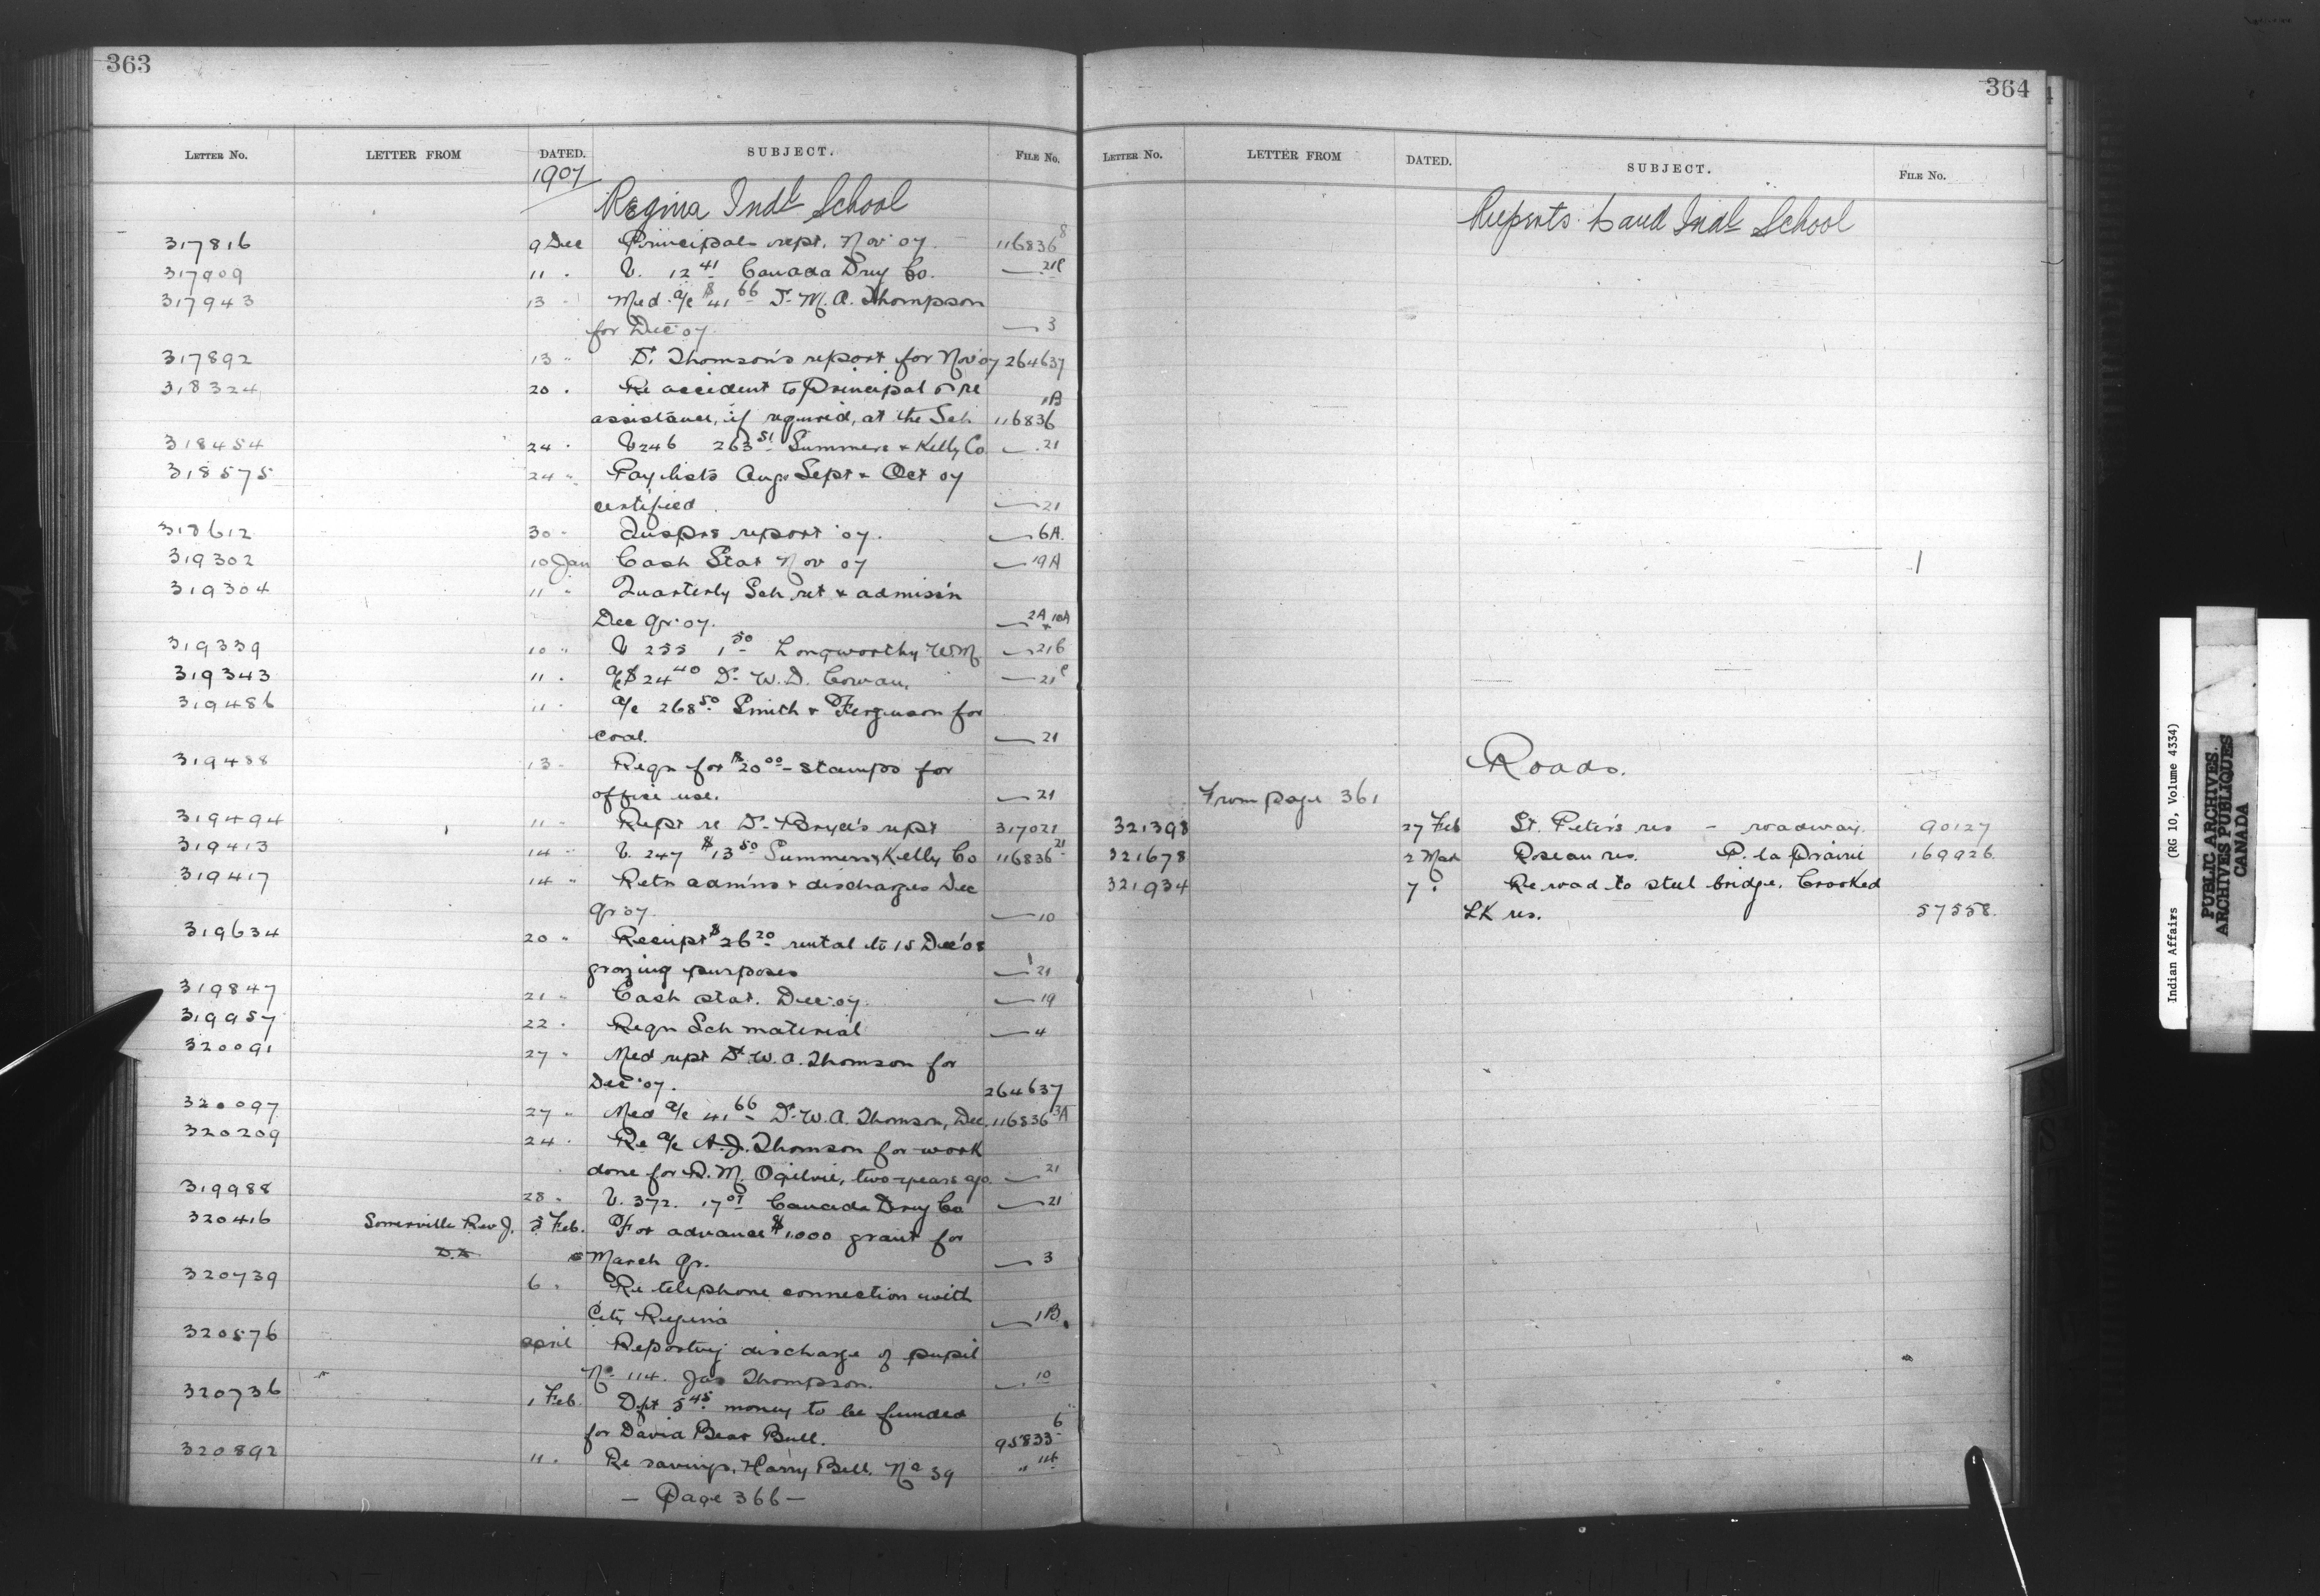 363
LETTER NO. LETTER FROM DATED. SUBJECT. FILE NO.
1907
Regina Indl School
317816 9 Dec Principals rept. Nov 07 116836 8
317909 11 " V. 12 41 Canada Drug Co. — 21C
317943 13 " Med a/c $41 66 Dr M. A. Thompson
for Dec 07 — 3
317892 13 " Dr. Thomson's report for Nov 07 264637
318324 20 " Re accident to Principal & re
assistance, if required, at the Sch 116836 1B
318454 24 " V 246 263 51 Summers & Kelly Co — 21
318575 24 " Pay lists Aug Sept & Oct 07
certified — 21
318612 30 " Insprs report 07. — 6A.
319302 10 Jan Cash Stat Nov 07 — 19A
319304 11 " Quarterly Sch ret & admis'n
Dec qr. 07. — 2A & 10A
319339 10 " V 255 1 50 Longworthy W M — 21b
319343 11 " a/c $24 40 Dr W. D. Cowan. — 21c
319486 11 " a/c 268 50 Smith & Ferguson for
coal. — 21
319488 13 " Reqn for $20 00 - stamps for
office use. — 21
319494 11 " Rept re Dr Bryce's rept 317021
319413 14 " V. 247 $13 50 Summers & Kelly Co 116836 21
319417 14 " Retn admns & discharges Dec
qr 07. — 10
319634 20 " Receipt $26 20 rental to 15 Dec '08
grazing purposes — 21
319847 21 " Cash stat. Dec. 07. — 19
319957 22 " Reqn Sch material — 4
320091 27 " Med rept Dr. W. A. Thomson for
Dec '07. 264637
320097 27 " Med a/c 41 66 Dr. W. A. Thomson, Dec. 116836 3A
320209 24 " Re a/c A. J. Thomson for work
done for D. M. Ogilvie, two years ago. — 21
319988 28 " V. 372. 17 07 Canada Drug Co — 21
320416 Somerville Rev J. 3 Feb. For advance $1000 grant for
D.D. March qr. — 3
320739 6 " Re telephone connection with
City Regina — 1B.
320576 april Reporting discharge of pupil
No. 114. Jas Thompson. — 10
320736 1 Feb. Dft 5 45 money to be funded
for David Bear Bull. 95833 6
320892 11 " Re savings. Harry Bell. No 39 " 116
— Page 366 —
364
LETTER NO. LETTER FROM DATED. SUBJECT. FILE NO.
Ruperts Land Indl School
Roads.
From page 361
321398 27 Feb St. Peter's res — roadway. 90127
321678 2 Mar Roseau res. P. la Prairie 169926
321934 7 " Re road to steel bridge, Crooked
LK res. 57558.
Indian Affairs (RG 10, Volume 4334)
PUBLIC ARCHIVES
ARCHIVES PUBLIQUES
CANADA